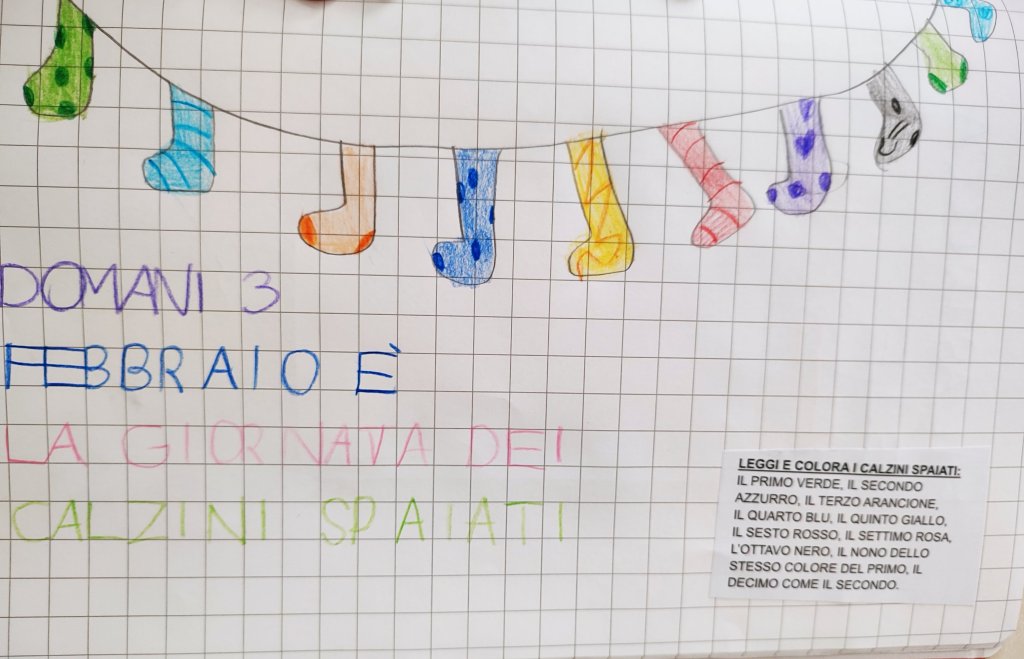 DOMANI 3
FEBBRAIO È
LA GIORNATA DEI
CALZINI SPAIATI
LEGGI E COLORA I CALZINI SPAIATI:
IL PRIMO VERDE, IL SECONDO
AZZURRO, IL TERZO ARANCIONE,
IL QUARTO BLU, IL QUINTO GIALLO,
IL SESTO ROSSO, IL SETTIMO ROSA,
L'OTTAVO NERO, IL NONO DELLO
STESSO COLORE DEL PRIMO, IL
DECIMO COME IL SECONDO.